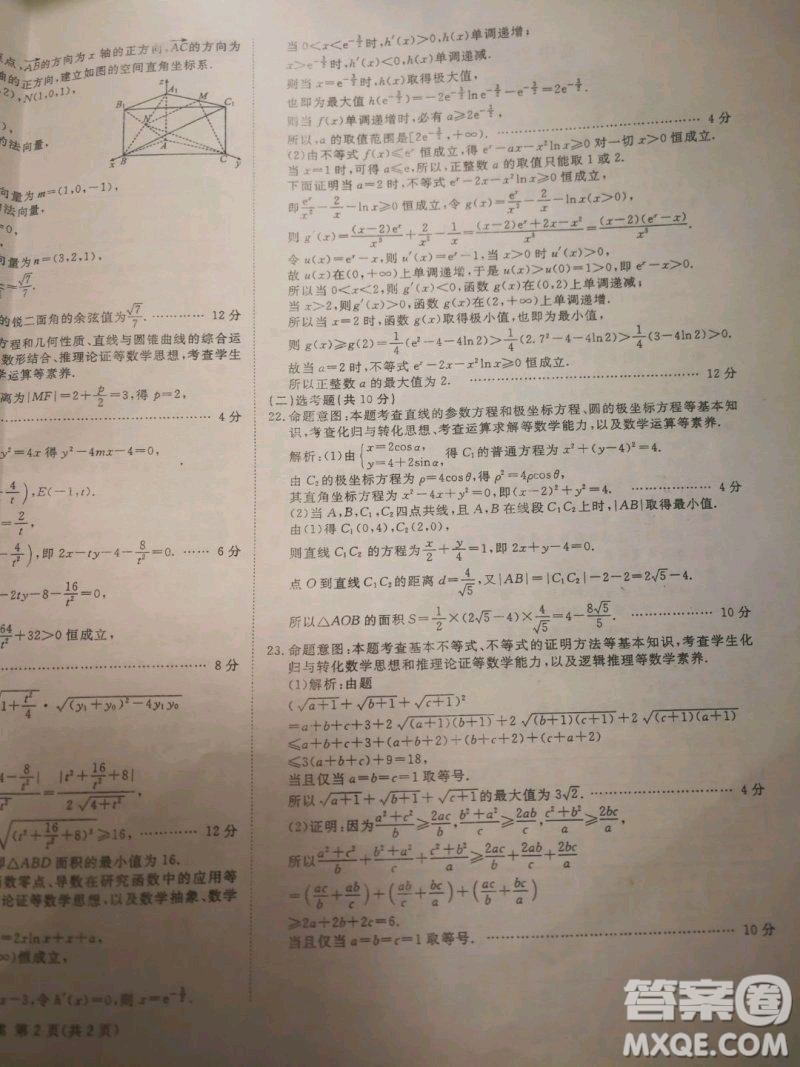 点,AB的方向为x轴的正方向,AC的方向为
的正方向,建立如图的空间直角坐标系.
2),N(1,0,1),
的法向量,
向量为m=(1,0,-1),
的法向量,
向量为n=(3,2,1),
的锐二面角的余弦值为√7/7. …… 12分
方程和几何性质、直线与圆锥曲线的综合运
数形结合、推理论证等数学思想,考查学生
学运算等素养.
离为|MF|=2+p/2=3,得p=2,
…… 4分
=4x得y²-4my-4=0,
4/t),E(-1,t).
=2/t,
),即2x-ty-4-8/t²=0. …… 6分
-2ty-8-16/t²=0,
64/t²+32>0恒成立,
…… 8分
1+t²/4·√((y₁+y₀)²-4y₁y₀
4-8/t²| |t²+16/t²+8|
= 2√(4+t²),
√((t²+16/t²+8)²)≥16, …… 12分
即△ABD面积的最小值为16.
函数零点、导数在研究函数中的应用等
论证等数学思想,以及数学抽象、数学
=2xlnx+x+a,
恒成立,
x-3,令h′(x)=0,则x=e^(-3/2).
案 第2页(共2页)
当0<x<e^(-3/2)时,h′(x)>0,h(x)单调递增;
x>e^(-3/2)时,h′(x)<0,h(x)单调递减.
则当x=e^(-3/2)时,h(x)取得极大值,
也即为最大值h(e^(-3/2))=-2e^(-3/2)lne^(-3/2)-e^(-3/2)=2e^(-3/2).
则当f(x)单调递增时,必有a≥2e^(-3/2).
所以,a的取值范围是[2e^(-3/2),+∞). …… 4分
(2)由不等式f(x)≤eˣ恒成立,得eˣ-ax-x²lnx≥0对一切x>0恒成立.
当x=1时,可得a≤e,所以,正整数a的取值只能取1或2.
下面证明当a=2时,不等式eˣ-2x-x²lnx≥0恒成立,
即eˣ/x²-2/x-lnx≥0恒成立,令g(x)=eˣ/x²-2/x-lnx,
则g′(x)=(x-2)eˣ/x³+2/x²-1/x=((x-2)eˣ+2x-x²)/x³=(x-2)(eˣ-x)/x³.
令u(x)=eˣ-x,则u′(x)=eˣ-1,当x>0时,u′(x)>0.
故u(x)在(0,+∞)上单调递增,于是u(x)>u(0)=1>0,即eˣ-x>0.
所以当0<x<2,则g′(x)<0,函数g(x)在(0,2)上单调递减.
当x>2,则g′(x)>0,函数g(x)在(2,+∞)上单调递增.
所以当x=2时,函数g(x)取得极小值,也即为最小值,
所以g(x)≥g(2)=1/4(e²-4-4ln2)>1/4(2.7²-4-4ln2)>1/4(3-4ln2)>0.
故当a=2时,不等式eˣ-2x-x²lnx≥0恒成立.
所以正整数a的最大值为2. …… 12分
(二)选考题(共10分)
22.命题意图:本题考查直线的参数方程和极坐标方程、圆的极坐标方程等基本知
识,考查化归与转化思想、考查运算求解等数学能力,以及数学运算等素养.
解析:(1)由{x=2cosα, y=4+2sinα,得C₁的普通方程为x²+(y-4)²=4.
由C₂的极坐标方程为ρ=4cosθ,得ρ²=4ρcosθ,
其直角坐标方程为x²-4x+y²=0,即(x-2)²+y²=4. …… 4分
(2)当A,B,C₁,C₂四点共线,且A,B在线段C₁C₂上时,|AB|取得最小值.
由(1)得C₁(0,4),C₂(2,0),
则直线C₁C₂的方程为x/2+y/4=1,即2x+y-4=0.
点O到直线C₁C₂的距离d=4/√5,又|AB|=|C₁C₂|-2-2=2√5-4.
所以△AOB的面积S=1/2×(2√5-4)×4/√5=4-8√5/5. …… 10分
23.命题意图:本题考查基本不等式、不等式的证明方法等基本知识,考查学生化
归与转化数学思想和推理论证等数学能力,以及逻辑推理等数学素养.
(1)解析:由题
(√(a+1)+√(b+1)+√(c+1))²
=a+b+c+3+2√((a+1)(b+1))+2√((b+1)(c+1))+2√((c+1)(a+1))
≤a+b+c+3+(a+b+2)+(b+c+2)+(c+a+2)
≤3(a+b+c)+9=18,
当且仅当a=b=c=1取等号.
所以√(a+1)+√(b+1)+√(c+1)的最大值为3√2. …… 4分
(2)证明:因为(a²+c²)/b≥2ac/b,(b²+a²)/c≥2ab/c,(c²+b²)/a≥2bc/a,
所以(a²+c²)/b+(b²+a²)/c+(c²+b²)/a≥2ac/b+2ab/c+2bc/a
=(ac/b+ab/c)+(ac/b+bc/a)+(ab/c+bc/a)
≥2a+2b+2c=6.
当且仅当a=b=c=1取等号. …… 10分
答案圈
MXQE.COM